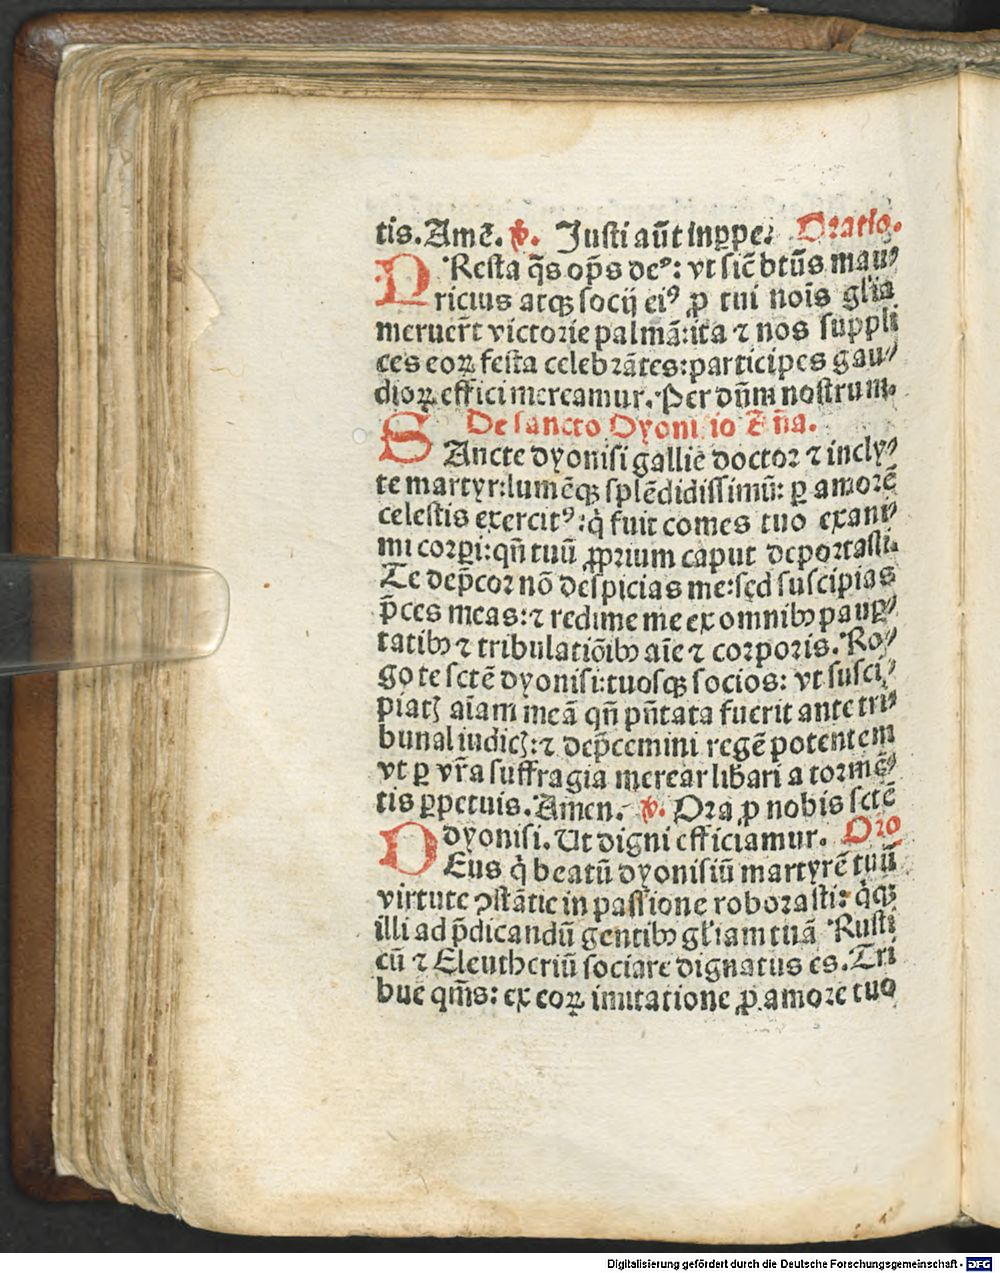 tis. Amē. ꝟ. Justi aūt inꝑpe. Oratio.
PResta q̄s op̄s deꝰ: vt sic̄ btūs mau⸗
ricius atqꝫ socij eiꝰ ꝓ tui noīs gl̄ia
meruer̄t victorie palmā: ita ⁊ nos suppli
ces eoꝝ festa celebrātes: participes gau⸗
dioꝝ effici mereamur. Per dn̄m nostrum.
De sancto Dyonisio Ē ña.
SAncte dyonisi gallie doctor ⁊ incly⸗
te martyr: lumēqꝫ splēdidissimū: ꝑ amorē
celestis exercitꝰ: q̇ fuit comes tuo exani⸗
mi corꝑi: qn̄ tuū ꝓprium caput deportasti.
Te dep̄cor nō despicias me: sed suscipias
p̄ces meas: ⁊ redime me ex omnibꝰ pauꝑ⸗
tatibꝰ ⁊ tribulatiōibꝰ aīe ⁊ corporis. Ro⸗
go te sctē dyonisi: tuosqꝫ socios: vt susci⸗
piatꝫ aīam meā qn̄ pn̄tata fuerit ante tri⸗
bunal iudicꝫ: ⁊ dep̄cemini regē potentem
vt ꝑ vr̄a suffragia merear lib̄ari a tormē⸗
tis ꝑpetuis. Amen. ꝟ. Ora ꝓ nobis sctē
dyonisi. Ut digni efficiamur. Oro
DEus q̇ beatū dyonisiū martyrē tuū
virtute ꝯstātie in passione roborasti: q̇qꝫ
illi ad p̄dicandū gentibꝰ gl̄iam tuā Rusti
cū ⁊ Eleutheriū sociare dignatus es. Tri
bue qm̄s: ex eoꝝ imitatione ꝓ amore tuo
Digitalisierung gefördert durch die Deutsche Forschungsgemeinschaft - DFG